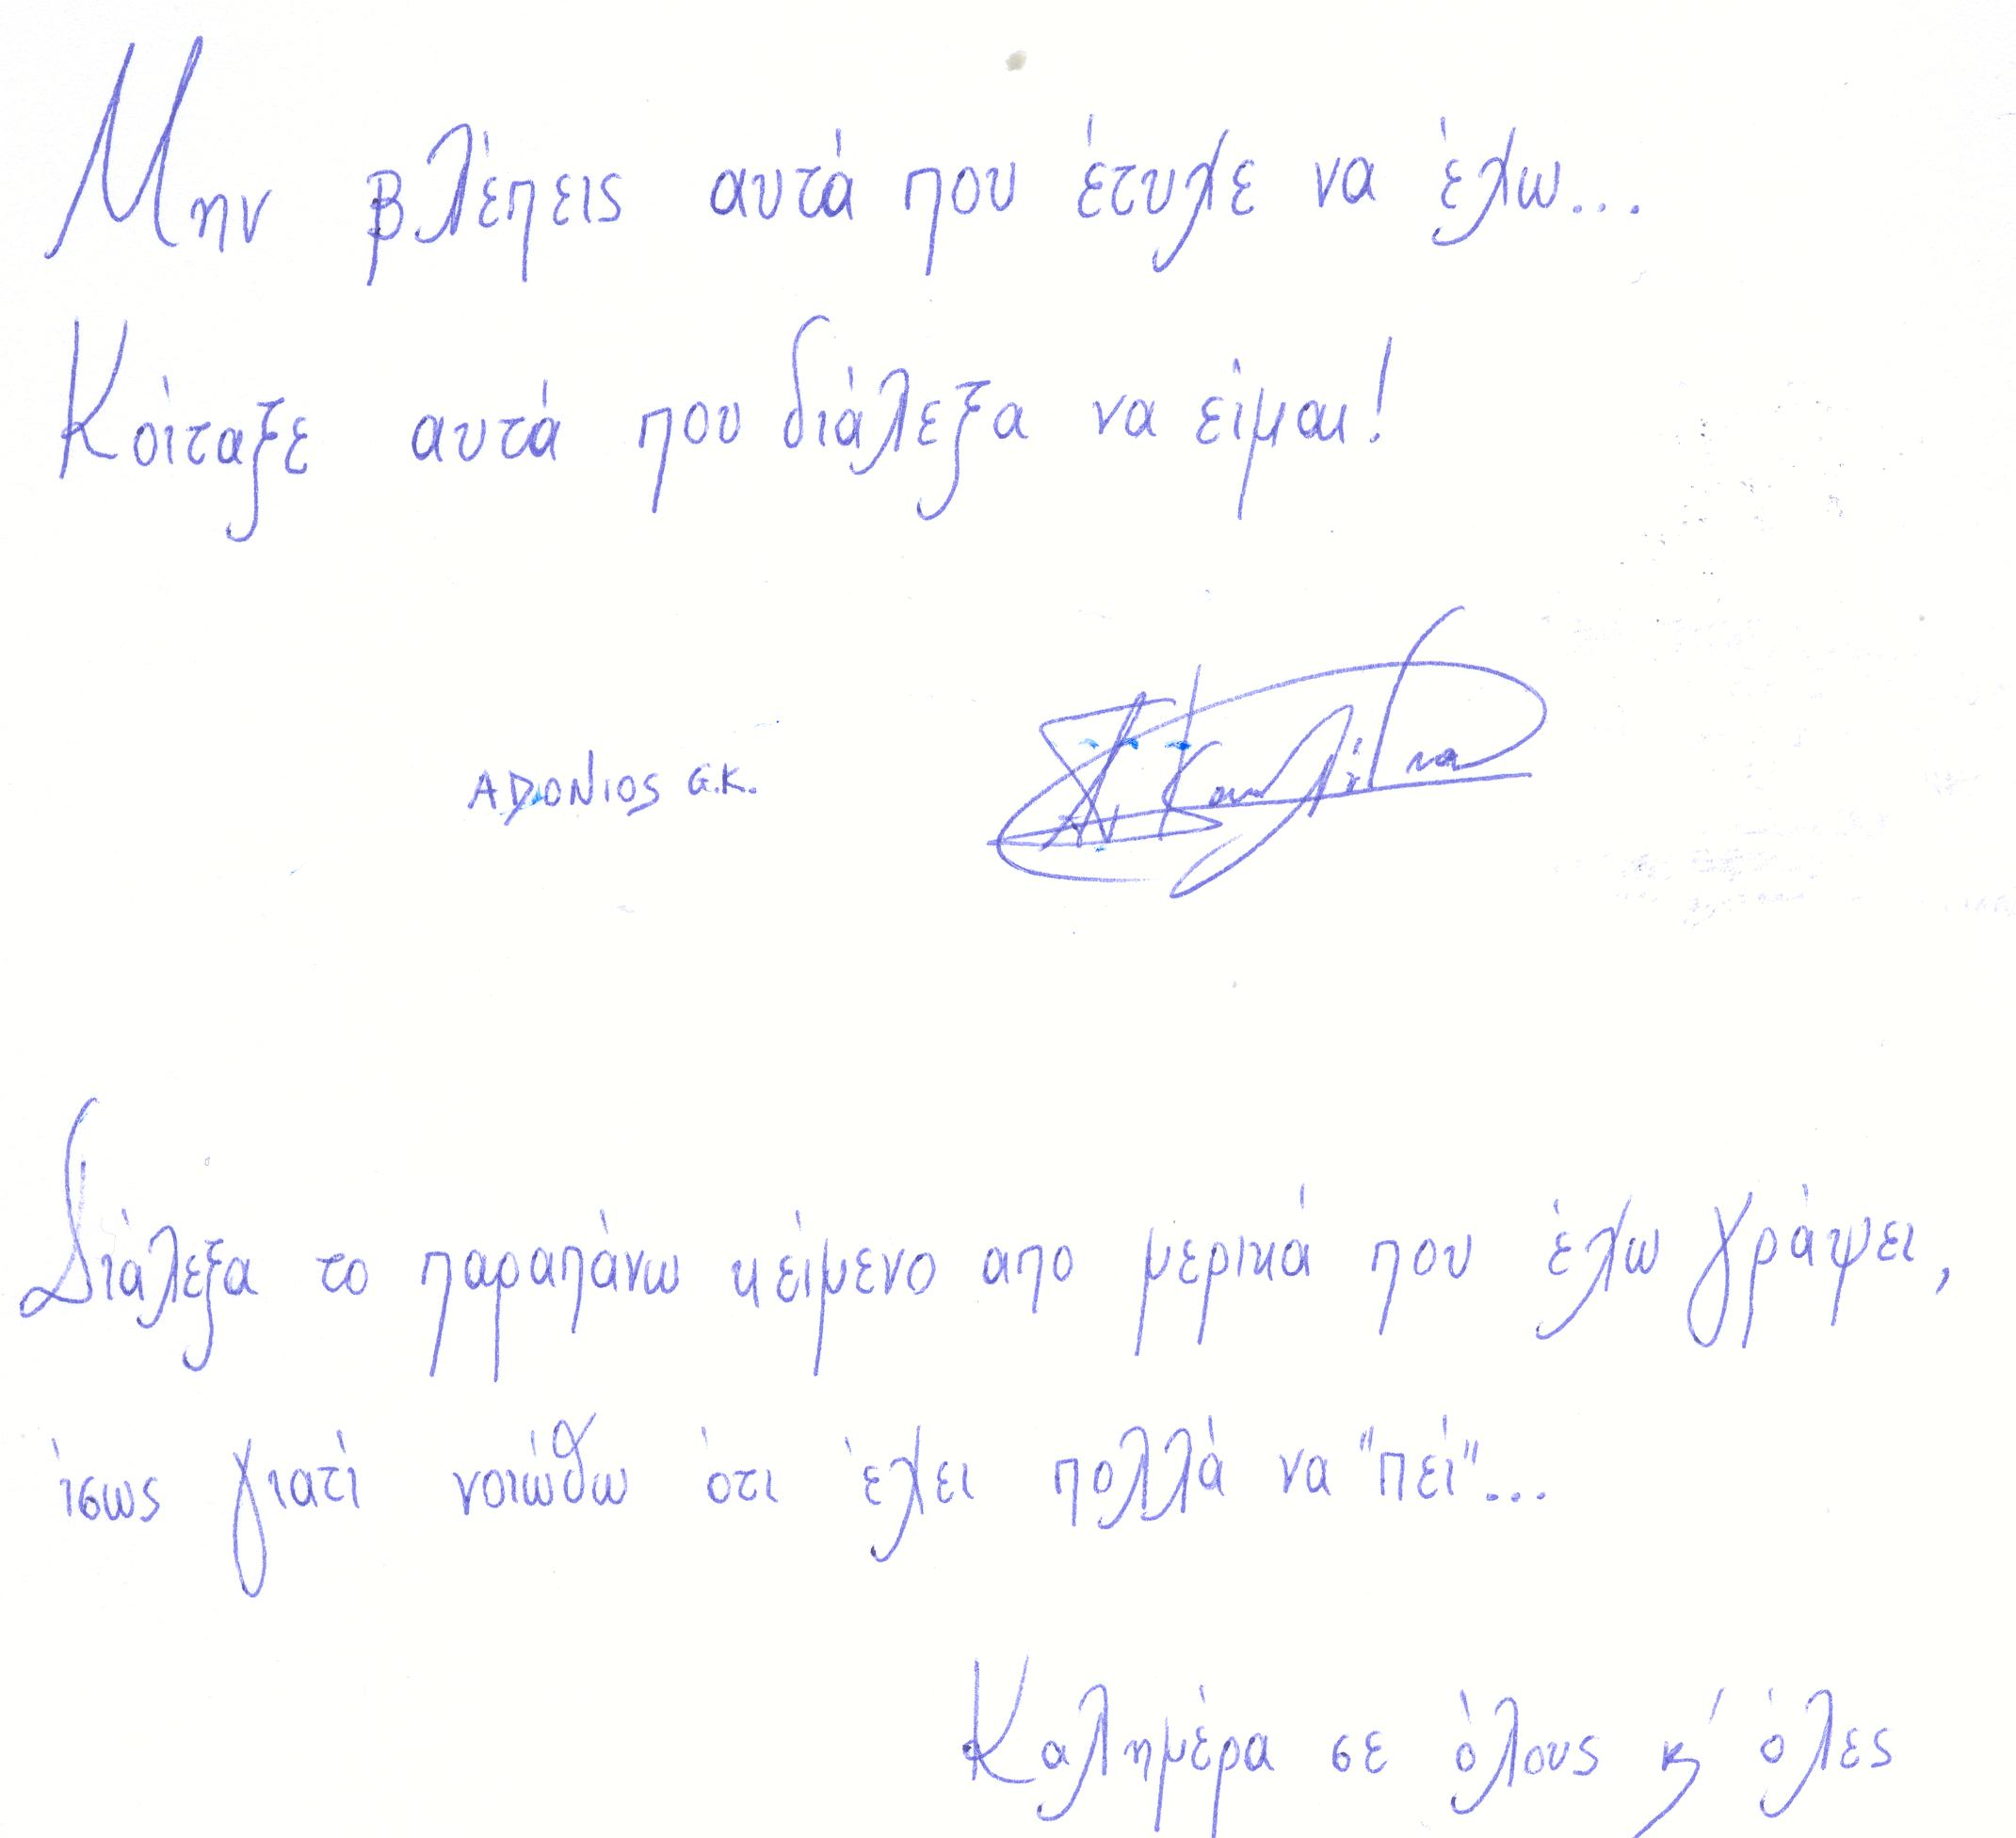 Μην βλέπεις αυτά που έτυχε να έχω...
Κοίταξε αυτά που διάλεξα να είμαι!
ADONIOS G.K.
Διάλεξα το παραπάνω κείμενο απο μερικά που έχω γράψει,
ίσως γιατί νοιώθω ότι έχει πολλά να "πεί"...
Καλημέρα σε όλους κ' όλες